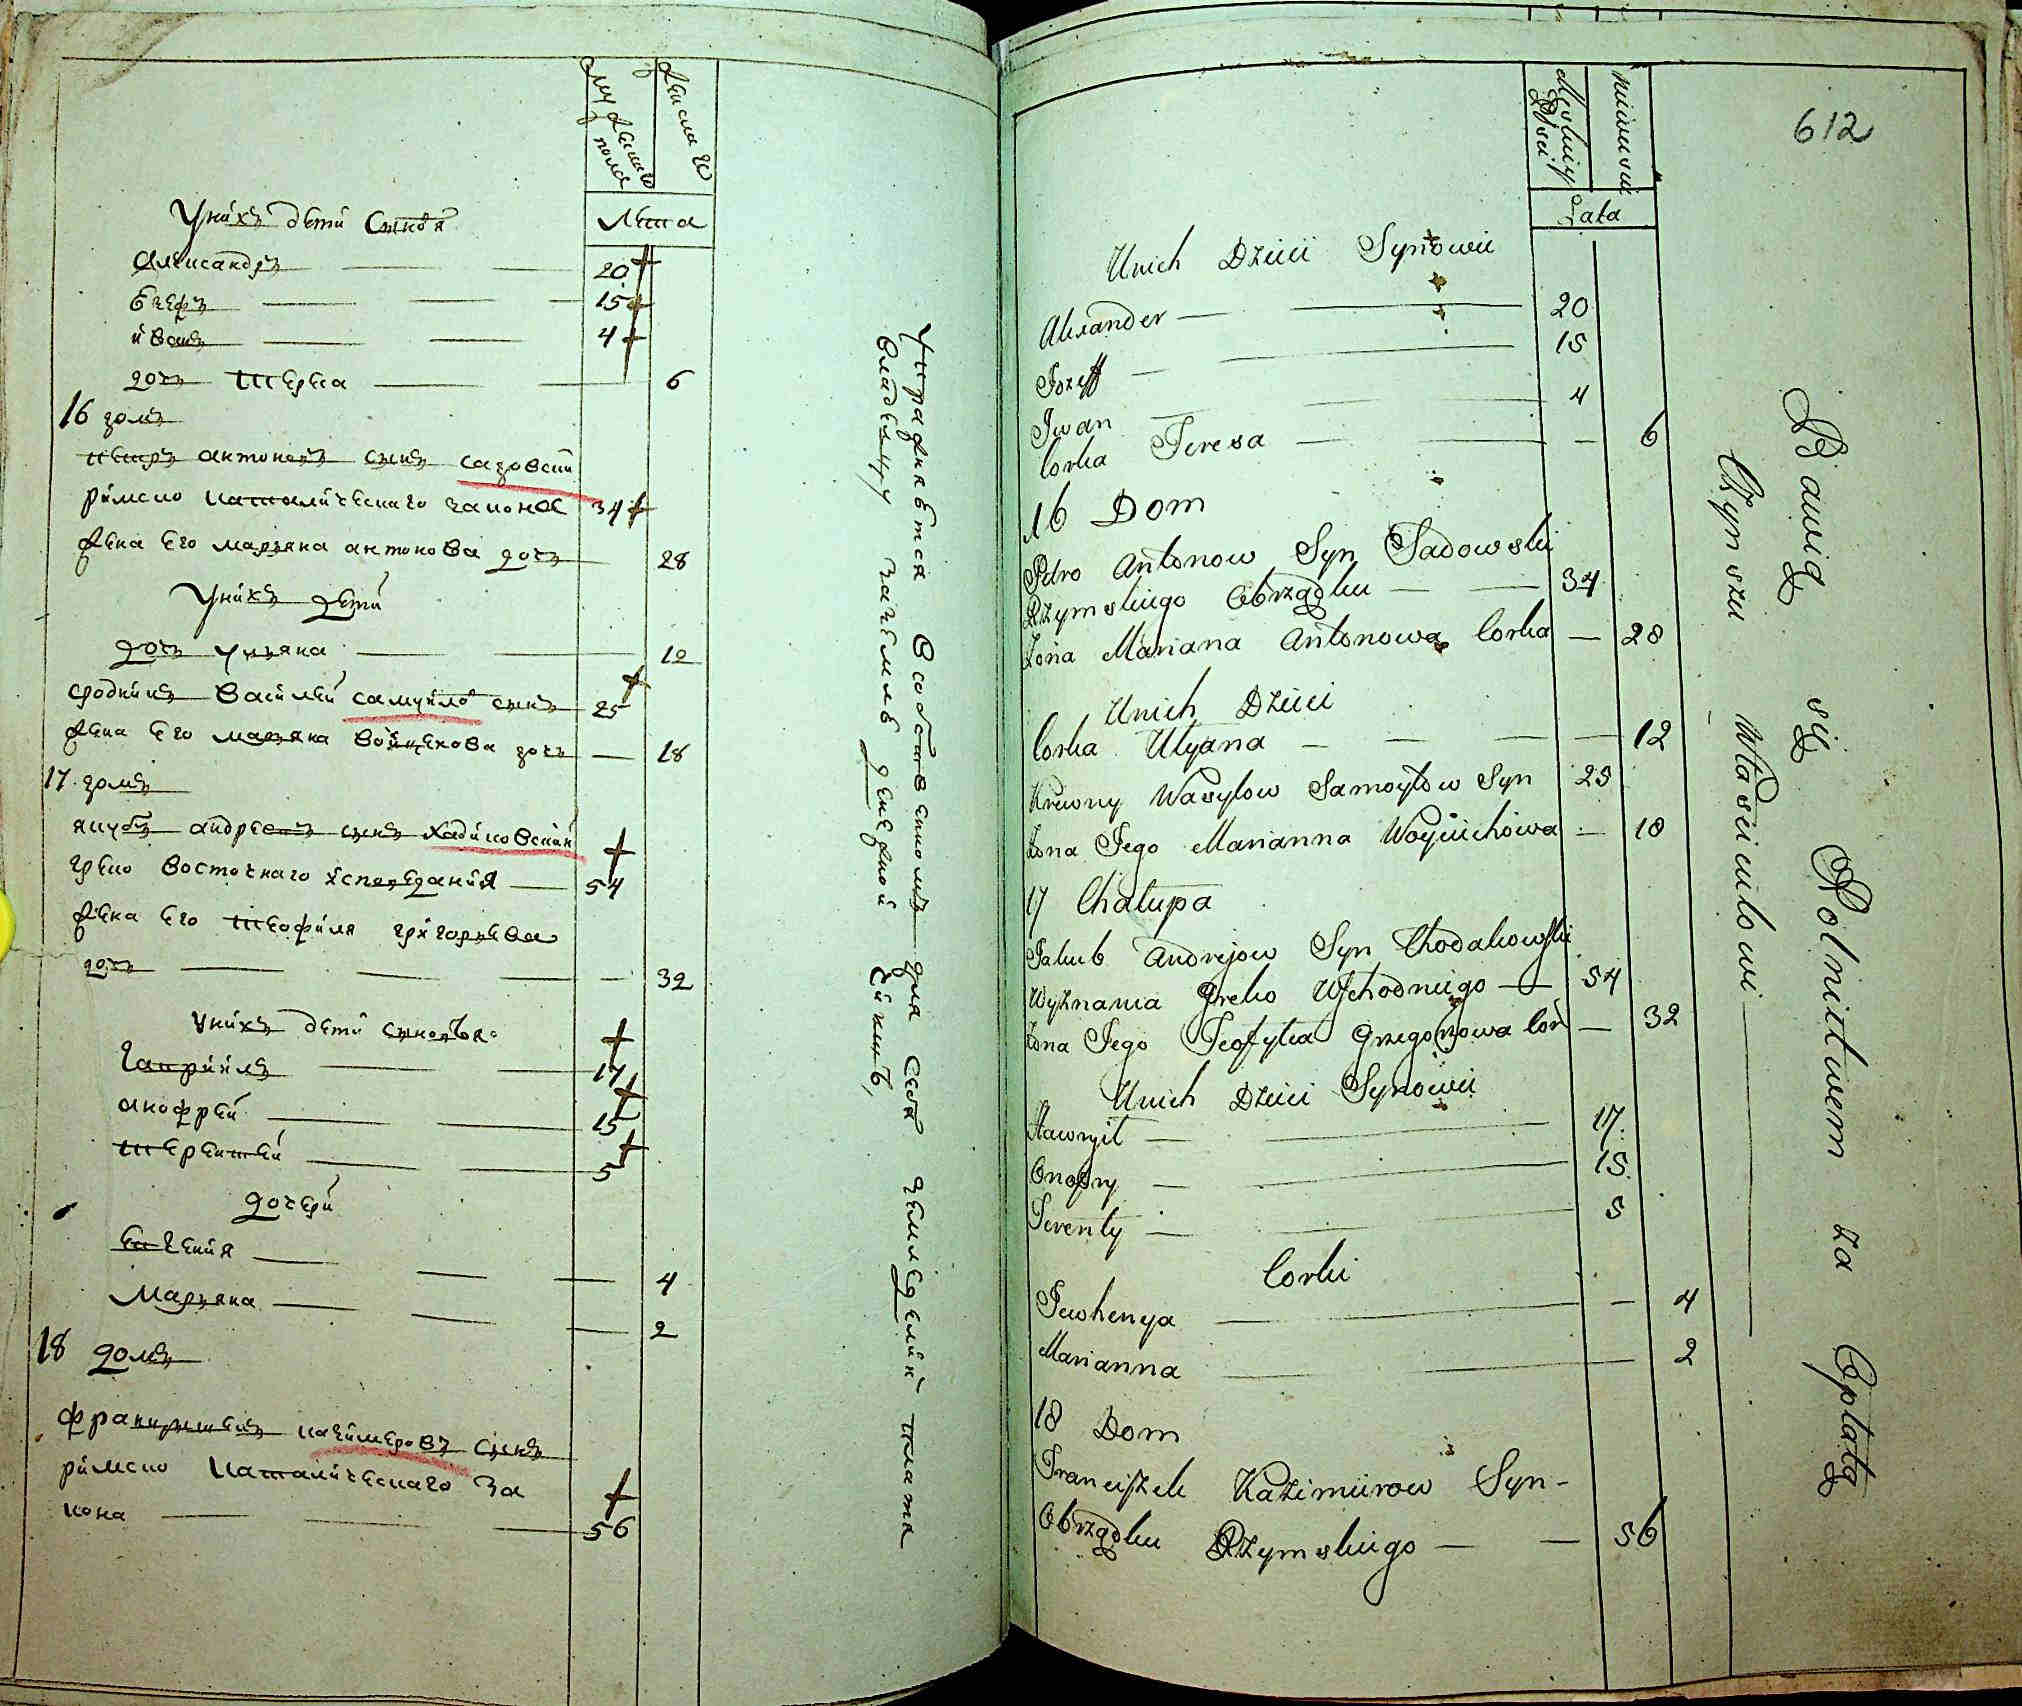 мужеска пола
женска
Лета
У них дети Сыновя
Александръ 20
Езефъ 15
иванъ 4
дочь тереса 6
16 домъ
петръ антоновъ сынъ садовски
римско католическаго закона 34
жена его марьяна антонова дочь 28
У них дети
дочь ульяна 12
сродникъ василей самуйло сынъ 25
жена его марьяна войцехова дочь 18
17 домъ
якубъ андреевъ сынъ хадиковский
греко восточнаго исповедания 54
жена его теофиля григорьева
дочь 32
У них дети сыновья
гаврийлъ 17
анофрей 15
терентей 5
дочери
евгения 4
марьяна 2
18 домъ
францишекъ казимеровъ сынъ
римско католическаго за
кона 56
Упражняется в собственномъ для себя земледелии плата
владельцу за землю денежной
612
Męskiey Płci
niewieści
Lata
Unich Dzieci Synowie
Alexander 20
Jozeff 15
Iwan 4
Corka Teresa 6
16 Dom
Petro Antonow Syn Sadowski
Rzymskiego Obrządku 34
Zona Mariana Antonowa Corka 28
Unich Dzieci
Corka Ulyana 12
Krewny Wasylow Samoyłow Syn 25
Zona Jego Marianna Woyciechowa 18
17 Chałupa
Jakub Andrejow Syn Chodakowski
Wyznania Greko Wschodniego 54
Zona Jego Teofylia Gregorowa Cor 32
Unich Dzieci Synowie
Hawryił 17
Onofry 15
Terenty 5
Corki
Jewhenya 4
Marianna 2
18 Dom
Franciszek Kazimierow Syn
Obrządku Rzymskiego 56
Bawią się Rolnictwem za Opłatą
Czynszu Właścicielowi